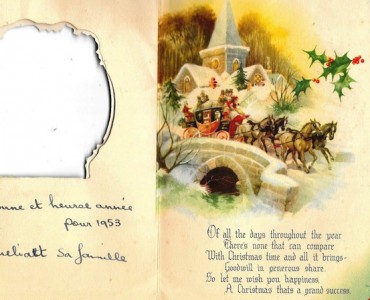 nne et heureuse année
pour 1953
sa famille
Of all the days throughout the year
There's none that can compare
With Christmas time and all it brings-
Goodwill in generous share.
So let me wish you happiness,
A Christmas thats a grand success.